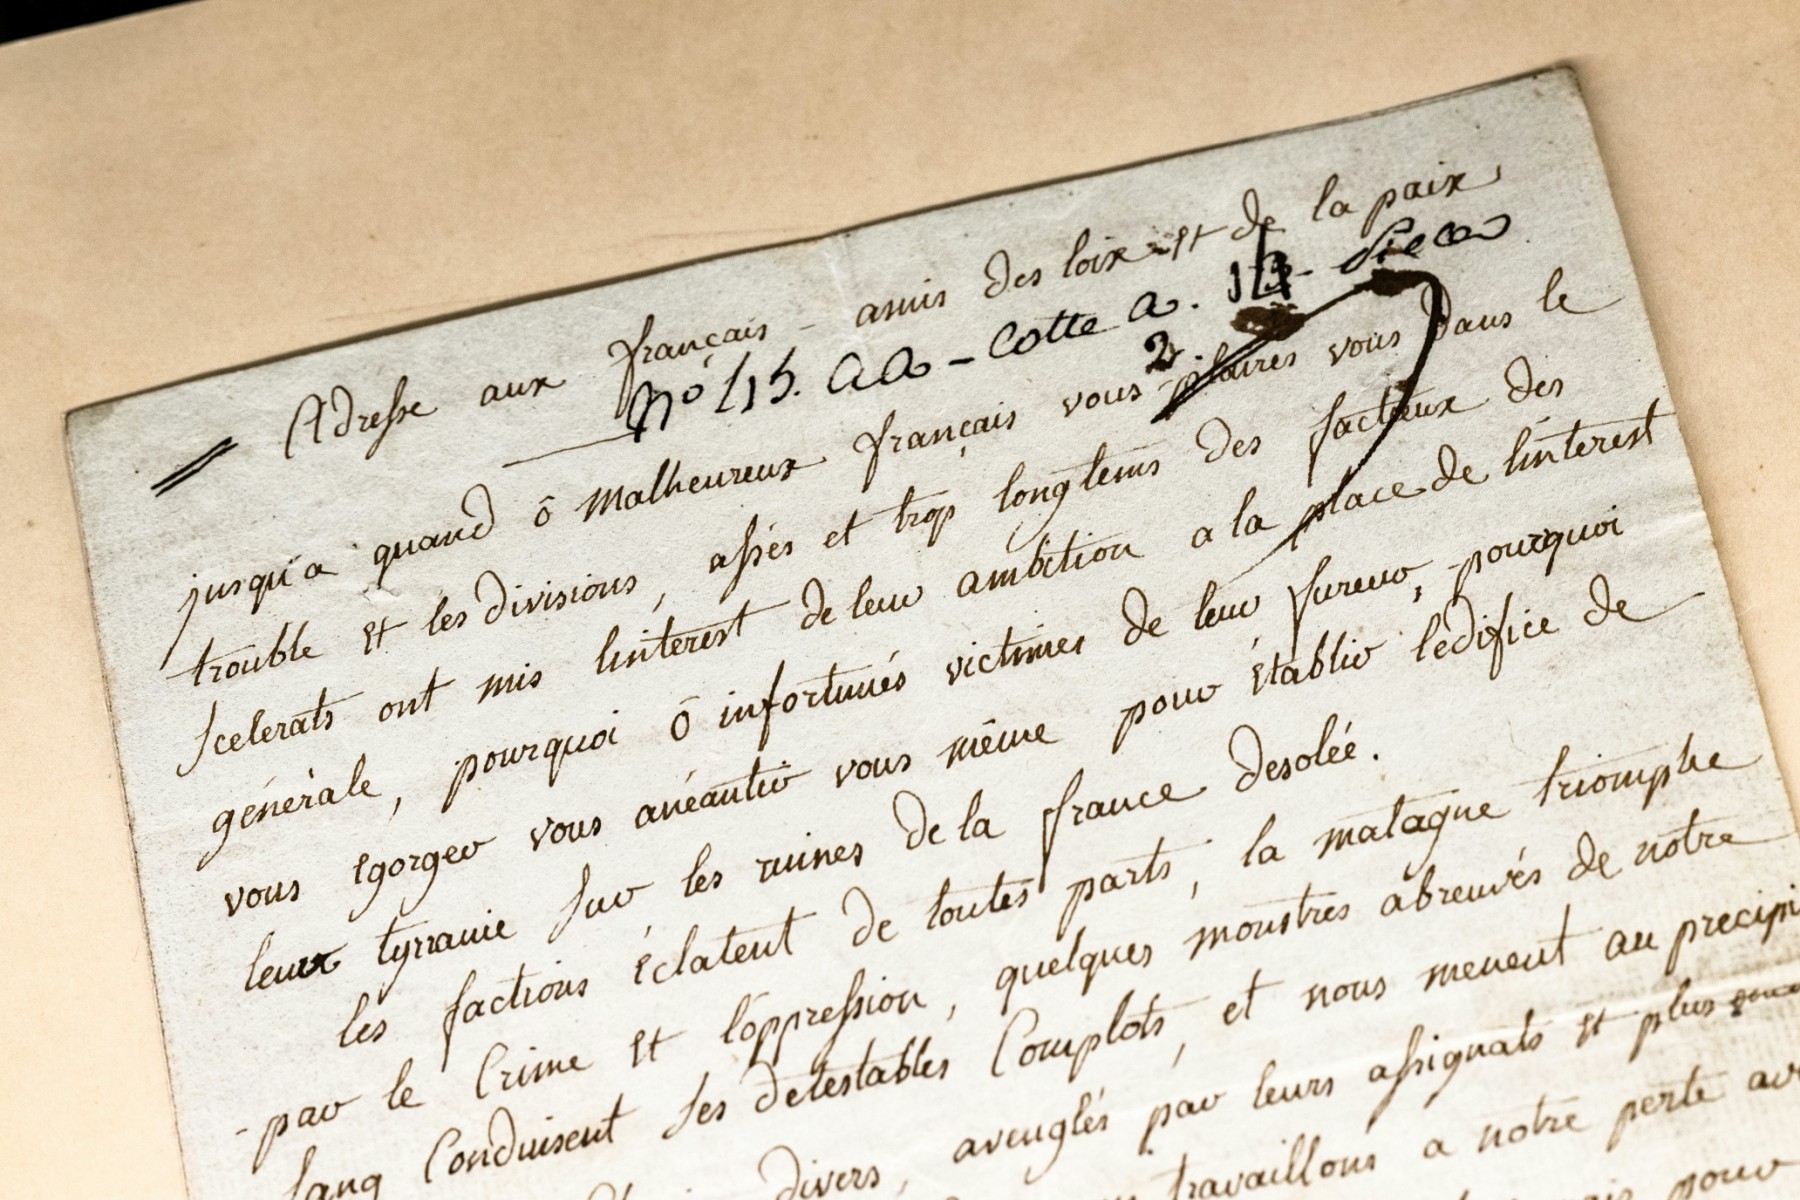 Adresse aux français - amis des loix et de la paix
No 15. aa - Cotte a. 2
jusqu'a quand ô malheureux français vous plaires vous dans le
trouble et les divisions, assés et trop longtems des factieux des
scelerats ont mis linterest de leur ambition a la place de linterest
générale, pourquoi ô infortunés victimes de leur fureur, pourquoi
vous egorger vous anéantir vous même pour établir ledifice de
leur tyrranie sur les ruines de la france desolée.
les factions éclatent de toutes parts, la matagne triomphe
par le Crime et l'oppression, quelques monstres abreuvés de notre
sang Conduisent ses detestables Complots, et nous menent au precipi
divers, aveuglés par leurs assignats et plus
travaillons a notre perte
pour